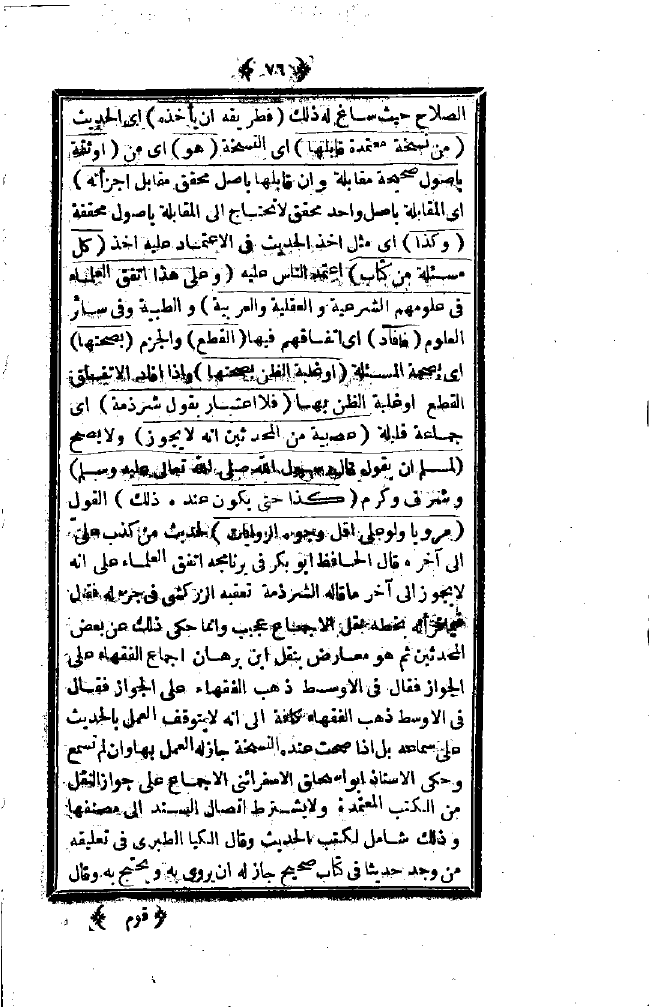 ﴿ ٧٦ ﴾
الصلاح حيث ساغ له ذلك ( فطريقه ان يأخذه ) اى الحديث
( من نسخة معتمدة قابلها ) اى النسخة ( هو ) اى من ( اوثقة
باصول صحيحة مقابلة وان قابلها باصل محقق مقابل اجزأته )
اى المقابلة باصل واحد محقق لانحتاج الى المقابلة باصول محققة
( وكذا ) اى مثل اخذ الحديث فى الاعتماد عليه اخذ ( كل
مسئلة من كتاب ) اعتمد الناس عليه ( وعلى هذا اتفق العلماء
فى علومهم الشرعية والعقلية والعربية ) والطبية وفى سائر
العلوم ( فافاد ) اى اتفاقهم فيها ( القطع ) والجزم ( بصحتها )
اى بصحة المسئلة ( اوغلبة الظن بصحتها ) واذا افاد الاتفاق
القطع اوغلبة الظن بها ( فلا اعتبار بقول شرذمة ) اى
جماعة قليلة ( عصبة من المحدثين انه لايجوز ) ولايصح
( لمسلم ان يقول قال رسول الله صلى الله تعالى عليه وسلم )
وشرف وكرم ( كذا حتى يكون عنده ذلك ) القول
( مرويا ولوعلى اقل وجوه الروايات ) لحديث من كذب على
الى آخره قال الحافظ ابو بكر فى برنامجه اتفق العلماء على انه
لايجوز الى آخر ماقاله الشرذمة تعقبه الزركشى فى جزء له فقال
بخطه نقل الاجماع عجيب وانما حكى ذلك عن بعض
المحدثين ثم هو معارض بنقل ابن برهان اجماع الفقهاء على
الجواز فقال فى الاوسط ذهب الفقهاء على الجواز فقال
فى الاوسط ذهب الفقهاء كافة الى انه لايتوقف العمل بالحديث
على سماعه بل اذا صحت عنده النسخة جازله العمل بها وان لم تسمع
وحكى الاستاذ ابواسحاق الاسفرائنى الاجماع على جواز النقل
من الكتب المعتمدة ولايشترط اتصال السند الى مصنفها
وذلك شامل لكتب الحديث وقال الكيا الطبرى فى تعليقه
من وجد حديثا فى كتاب صحيح جاز له ان يروى به ويحتج به وقال
﴿ قوم ﴾